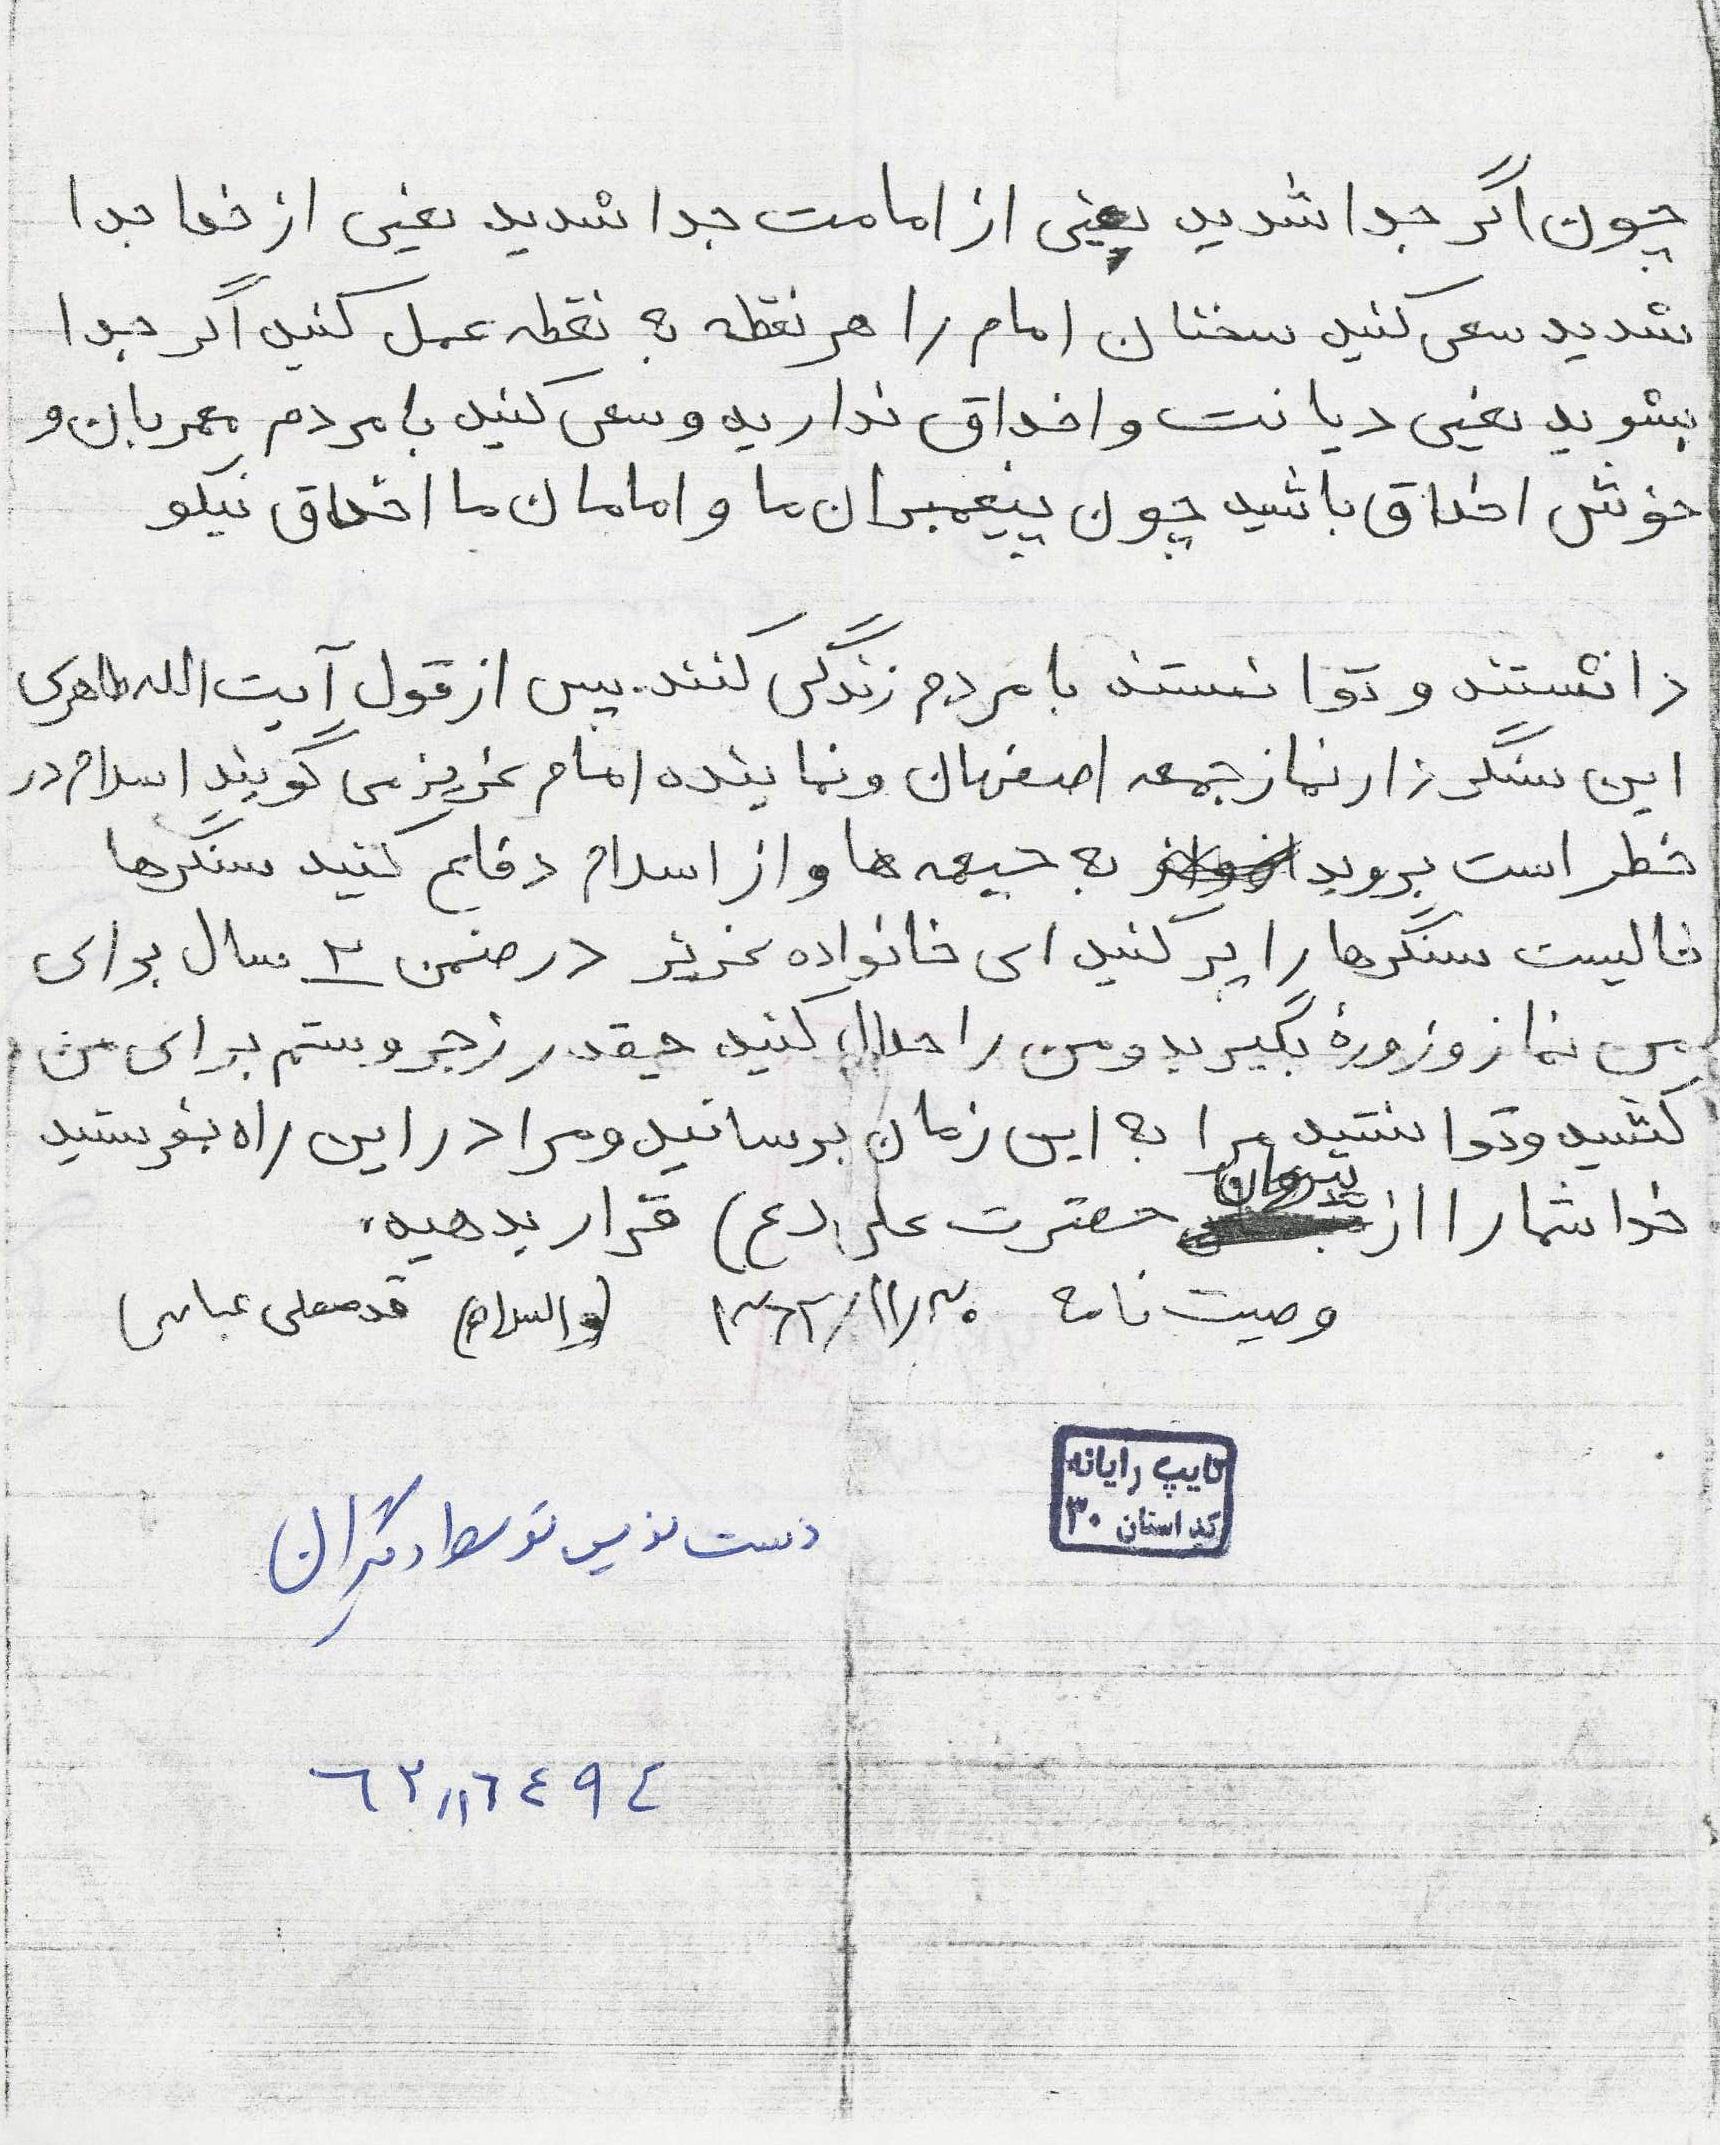 چون اگر جدا شدید یعنی از امامت جدا شدید یعنی از خدا جدا
شدید سعی کنید سخنان امام را هر نقطه به نقطه عمل کنید اگر جدا
بشوید یعنی دیانت و اخلاق ندارید و سعی کنید با مردم مهربان و
خوش اخلاق باشید چون پیغمبران ما و امامان ما اخلاق نیکو
داشتند و توانستند با مردم زندگی کنند. پس از قول آیت الله طاهری
این سنگرزار نماز جمعه اصفهان و نماینده امام عزیز می گویند اسلام در
خطر است بروید به جبهه ها و از اسلام دفاع کنید سنگرها
خالیست سنگرها را پر کنید ای خانواده عزیز در ضمن ۲ سال برای
من نماز و روزهٔ بگیرید و من را حلال کنید چقدر زجر و ستم برای من
کشید و توانستید مرا به این زمان برسانید و مرا در این راه بفرستید
خدا شما را از پیروان حضرت علی (ع) قرار بدهید.
وصیت نامه ۱۳۶۲/۱۱/۳۰ (والسلام) قدمعلی عباسی)
تایپ رایانه
کد استان ۳۰
دست نویس توسط دیگران
۶۲۱۱۶۴۹۴